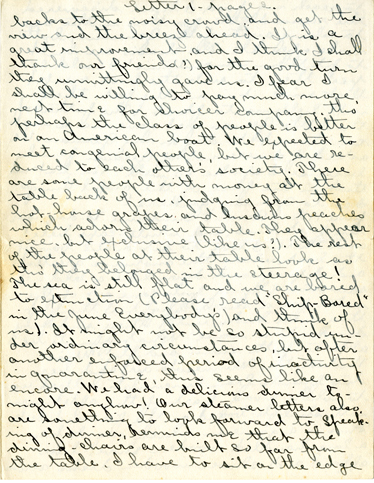 Letter 1 - page 2.
backs to the noisy crowd, and get the
view and the breeze ahead. It is a
great improvement, and I think I shall
thank our friends (?) for the good turn
they unwittingly gave us. I fear I
shall be willing to pay much more
next time for choicer company, tho
perhaps the class of people is better
on an American boat. We expected to
meet congenial people, but we are re-
duced to each other's society. There
are some people with money at the
table back of us, judging from the
hot house grapes and luscious peaches
which adorn their table. They appear
nice, but exclusive (like us!). The rest
of the people at their table look as
tho they belonged in the steerage!
The sea is still flat and we are bored
to extinction (Please read "Ship-Bored"
in the June Everybody's, and think of
us). It might not be so stupid un-
der ordinary circumstances, but after
another enforced period of inactivity
in quarantine, this seems like an
encore. We had a delicious dinner to-
night anyhow! Our steamer letters also,
are something to look forward to. Speak-
ing of dinner, reminds me that the
dining-chairs are built so far from
the table, I have to sit on the edge